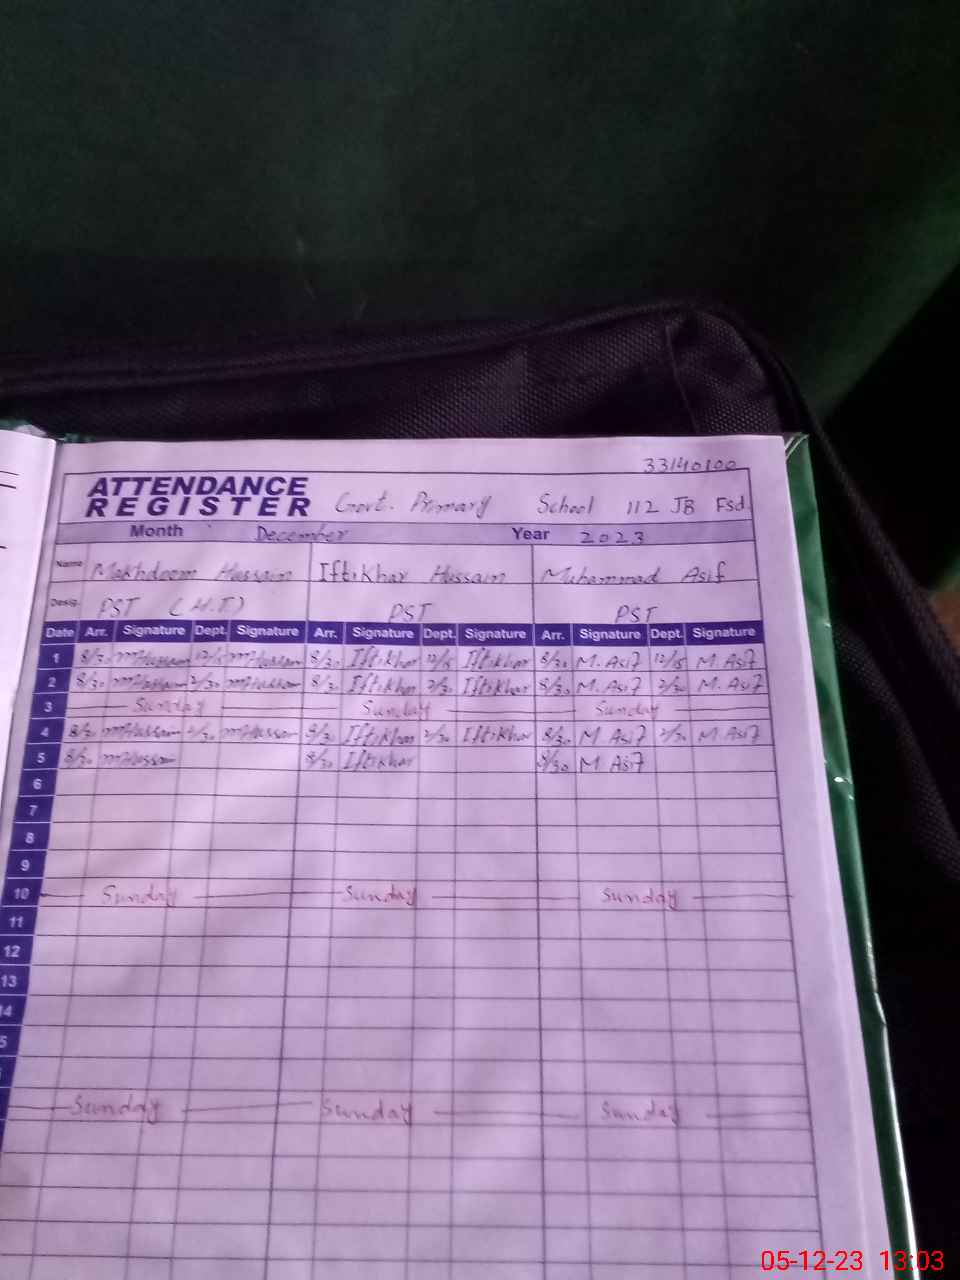 33140100
ATTENDANCE
REGISTER Govt. Primary School 112 JB Fsd.
Month December Year 2023
Name Makhdoom Hussain Iftikhar Hussain Muhammad Asif
Desig. PST (H.T) PST PST
Date Arr. Signature Dept. Signature Arr. Signature Dept. Signature Arr. Signature Dept. Signature
1 8/30 mHussain 12/15 mHussain 8/30 Iftikhar 12/15 Iftikhar 8/30 M. Asif 12/15 M. Asif
2 8/30 mHussain 2/30 mHussain 8/30 Iftikhar 2/30 Iftikhar 8/30 M. Asif 2/30 M. Asif
3 Sunday Sunday Sunday
4 8/30 mHussain 2/30 mHussain 8/30 Iftikhar 2/30 Iftikhar 8/30 M. Asif 2/30 M. Asif
5 8/30 mHussain 8/30 Iftikhar 8/30 M. Asif
6
7
8
9
10 Sunday Sunday Sunday
11
12
13
14
5
Sunday Sunday Sunday
05-12-23 13:03